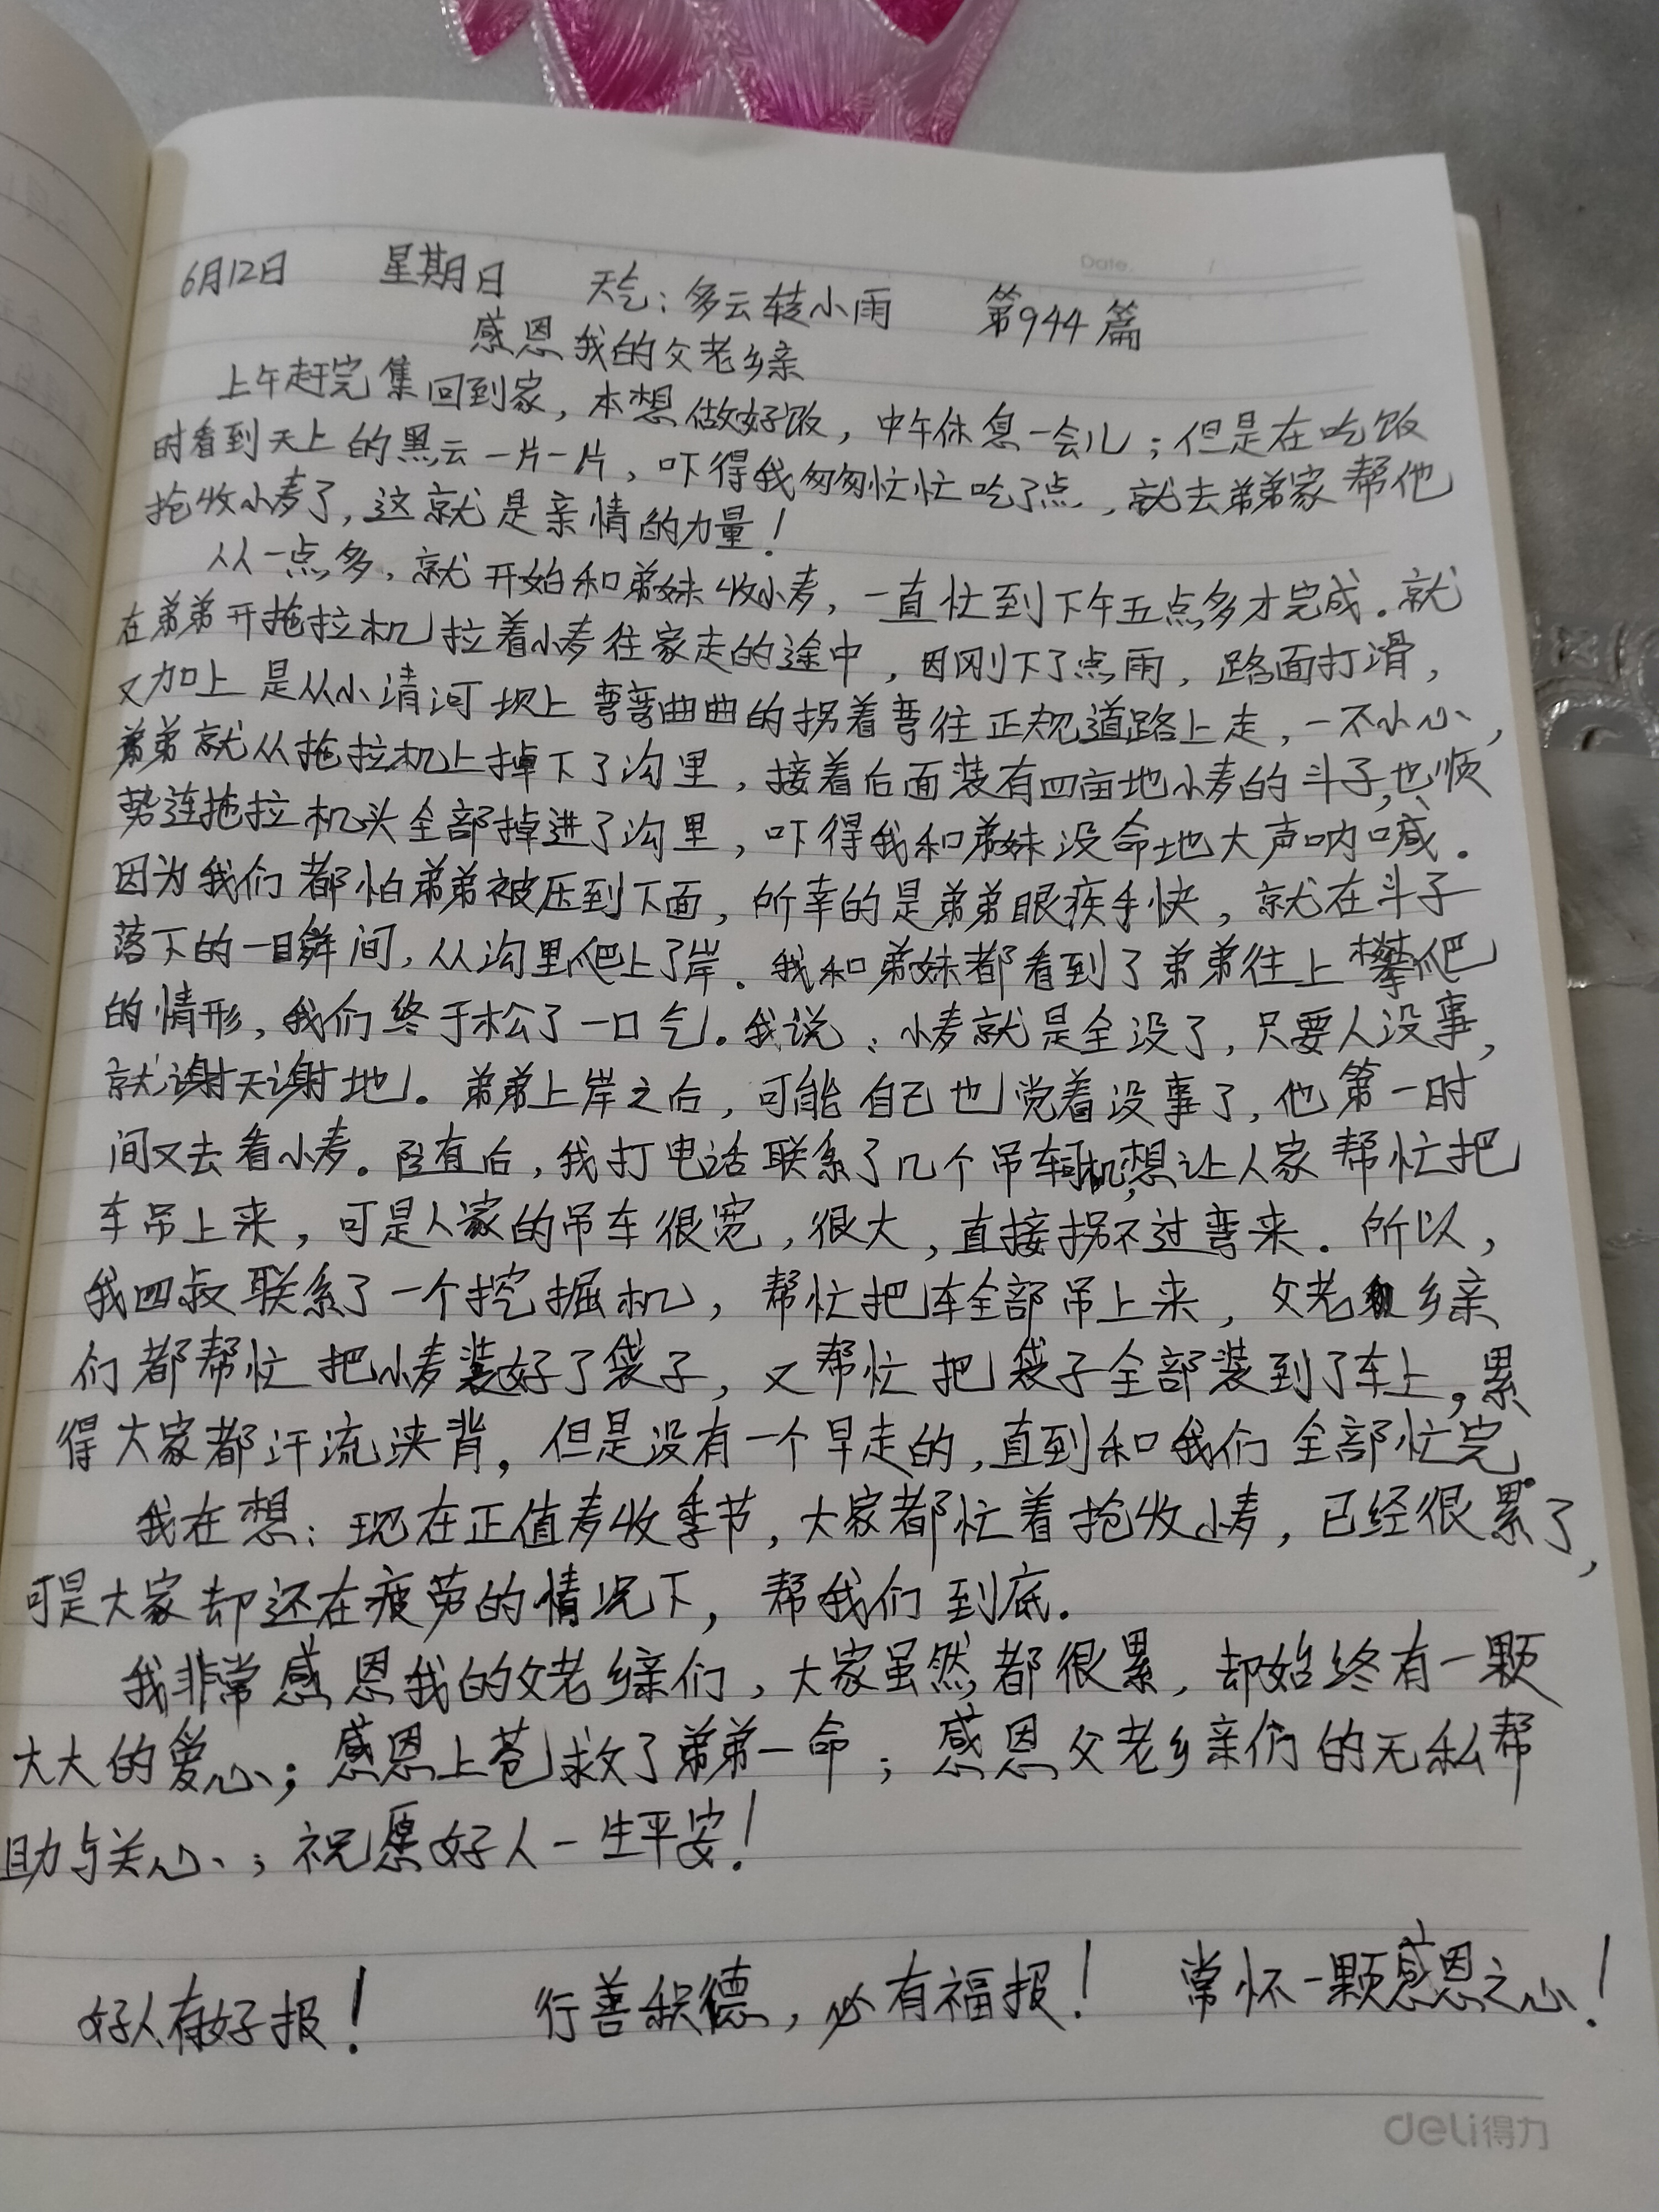 Date.
6月12日 星期日 天气:多云转小雨 第944篇
感恩我的父老乡亲
上午赶完集回到家,本想做好饭,中午休息一会儿;但是在吃饭
时看到天上的黑云一片一片,吓得我匆匆忙忙吃了点,就去弟弟家帮他
抢收小麦了,这就是亲情的力量!
从一点多,就开始和弟妹收小麦,一直忙到下午五点多才完成.就
在弟弟开拖拉机拉着小麦往家走的途中,因刚下了点雨,路面打滑,
又加上是从小清河坝上弯弯曲曲的拐着弯往正规道路上走,一不小心,
弟弟就从拖拉机上掉下了沟里,接着后面装有四亩地小麦的斗子,也顺
势连拖拉机头全部掉进了沟里,吓得我和弟妹没命地大声呐喊.
因为我们都怕弟弟被压到下面,所幸的是弟弟眼疾手快,就在斗子
落下的一瞬间,从沟里爬上了岸.我和弟妹都看到了弟弟往上攀爬
的情形,我们终于松了一口气。我说:小麦就是全没了,只要人没事,
就谢天谢地。弟弟上岸之后,可能自己也觉着没事了,他第一时
间又去看小麦。随后,我打电话联系了几个吊车司机,想让人家帮忙把
车吊上来,可是人家的吊车很宽,很大,直接拐不过弯来.所以,
我四叔联系了一个挖掘机,帮忙把车全部吊上来,父老乡亲
们都帮忙把小麦装好了袋子,又帮忙把袋子全部装到了车上。累
得大家都汗流浃背,但是没有一个早走的,直到和我们全部忙完.
我在想:现在正值麦收季节,大家都忙着抢收小麦,已经很累了,
可是大家却还在疲劳的情况下,帮我们到底.
我非常感恩我的父老乡亲们,大家虽然都很累,却始终有一颗
大大的爱心;感恩上苍救了弟弟一命;感恩父老乡亲们的无私帮
助与关心;祝愿好人一生平安!
好人有好报! 行善积德,必有福报! 常怀一颗感恩之心!
deli得力